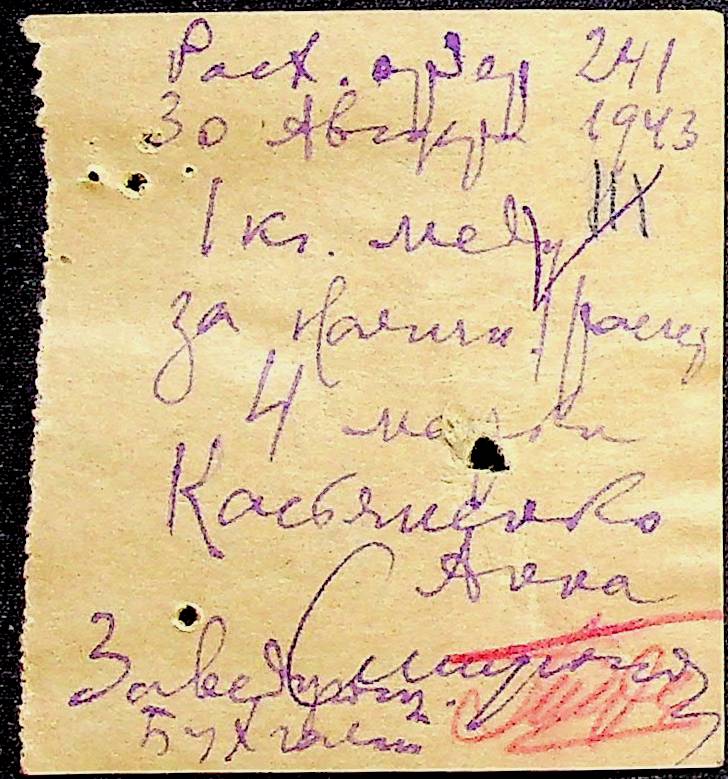 Расх. ордер 241
30 Августа 1943
1 кг. меду III
за наличн. расчет
4 марки
Касьяненко
Анна
Заведующ.
Бухгалт